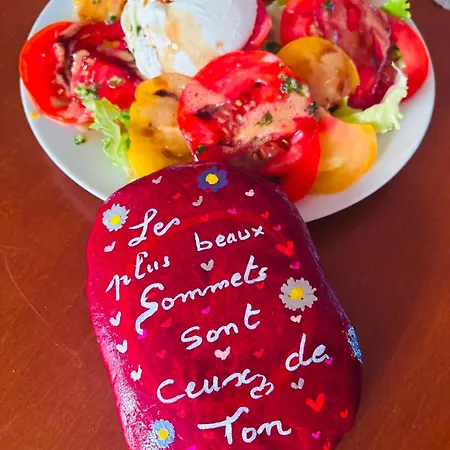 Les
plus beaux
Sommets
sont
ceux de
Ton